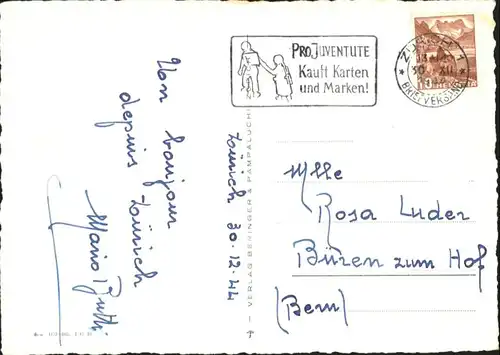 PRO JUVENTUTE
Kauft Karten
und Marken!
ZÜRICH 1
30. XII.
BRIEFVERSAND
Un bonjour
depuis
Zürich
Mario
Zürich 30.12.44
VERLAG BERINGER & PAMPALUCHI
Mlle
Rosa Luder
Büren zum Hof
(Bern)